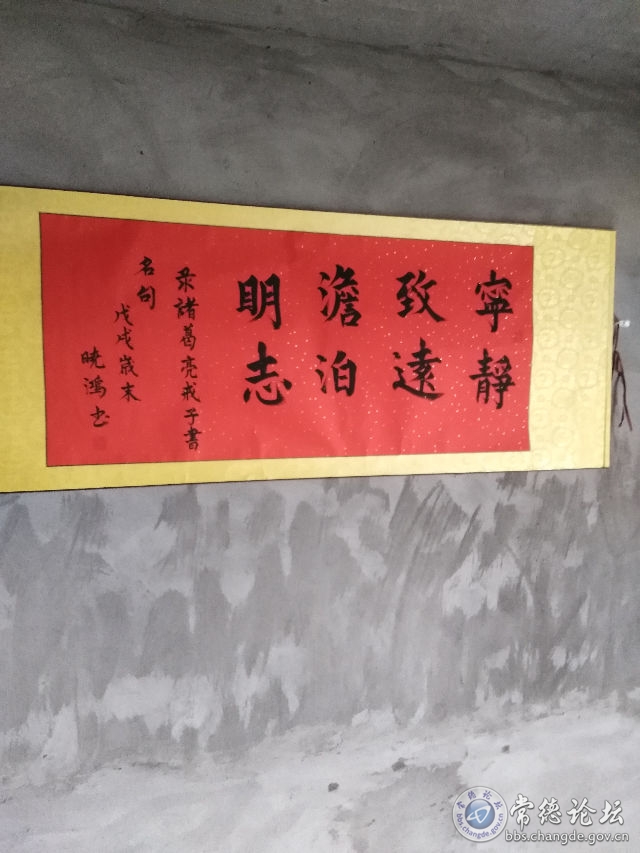 寧靜
致遠
澹泊
明志
录諸葛亮戒子書
名句
戊戌歲末
曉鴻书
常德论坛
bbs.changde.gov.cn